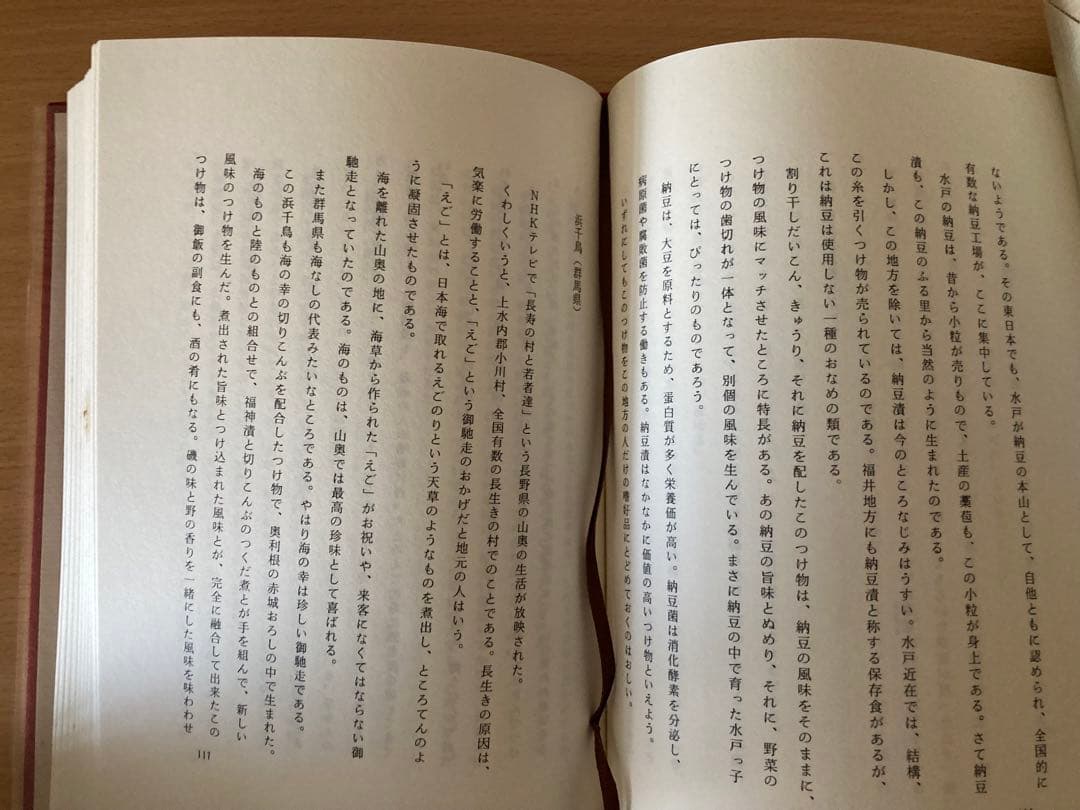 ないようである。その東日本でも、水戸が納豆の本山として、自他ともに認められ、全国的に
有数な納豆工場が、ここに集中している。
水戸の納豆は、昔から小粒が売りもので、土産の藁苞も、この小粒が身上である。さて納豆
漬も、この納豆のふる里から当然のように生まれたのである。
しかし、この地方を除いては、納豆漬は今のところなじみはうすい。水戸近在では、結構、
この糸を引くつけ物が売られているのである。福井地方にも納豆漬と称する保存食があるが、
これは納豆は使用しない一種のおなめの類である。
割り干しだいこん、きゅうり、それに納豆を配したこのつけ物は、納豆の風味をそのままに、
つけ物の風味にマッチさせたところに特長がある。あの納豆の旨味とぬめり、それに、野菜の
つけ物の歯切れが一体となって、別個の風味を生んでいる。まさに納豆の中で育った水戸っ子
にとっては、ぴったりのものであろう。
納豆は、大豆を原料とするため、蛋白質が多く栄養価が高い。納豆菌は消化酵素を分泌し、
病原菌や腐敗菌を防止する働きもある。納豆漬はなかなかに価値の高いつけ物といえよう。
いずれにしてもこのつけ物をこの地方の人だけの嗜好品にとどめておくのはおしい。
浜千鳥（群馬県）
NHKテレビで「長寿の村と若者達」という長野県の山奥の生活が放映された。
くわしくいうと、上水内郡小川村、全国有数の長生きの村でのことである。長生きの原因は、
気楽に労働することと、「えご」という御馳走のおかげだと地元の人はいう。
「えご」とは、日本海で取れるえごのりという天草のようなものを煮出し、ところてんのよ
うに凝固させたものである。
海を離れた山奥の地に、海草から作られた「えご」がお祝いや、来客になくてはならない御
馳走となっていたのである。海のものは、山奥では最高の珍味として喜ばれる。
また群馬県も海なしの代表みたいなところである。やはり海の幸は珍しい御馳走である。
この浜千鳥も海の幸の切りこんぶを配合したつけ物で、奥利根の赤城おろしの中で生まれた。
海のものと陸のものとの組合せで、福神漬と切りこんぶのつくだ煮とが手を組んで、新しい
風味のつけ物を生んだ。煮出された旨味とつけ込まれた風味とが、完全に融合して出来たこの
つけ物は、御飯の副食にも、酒の肴にもなる。磯の味と野の香りを一緒にした風味を味わわせ
117